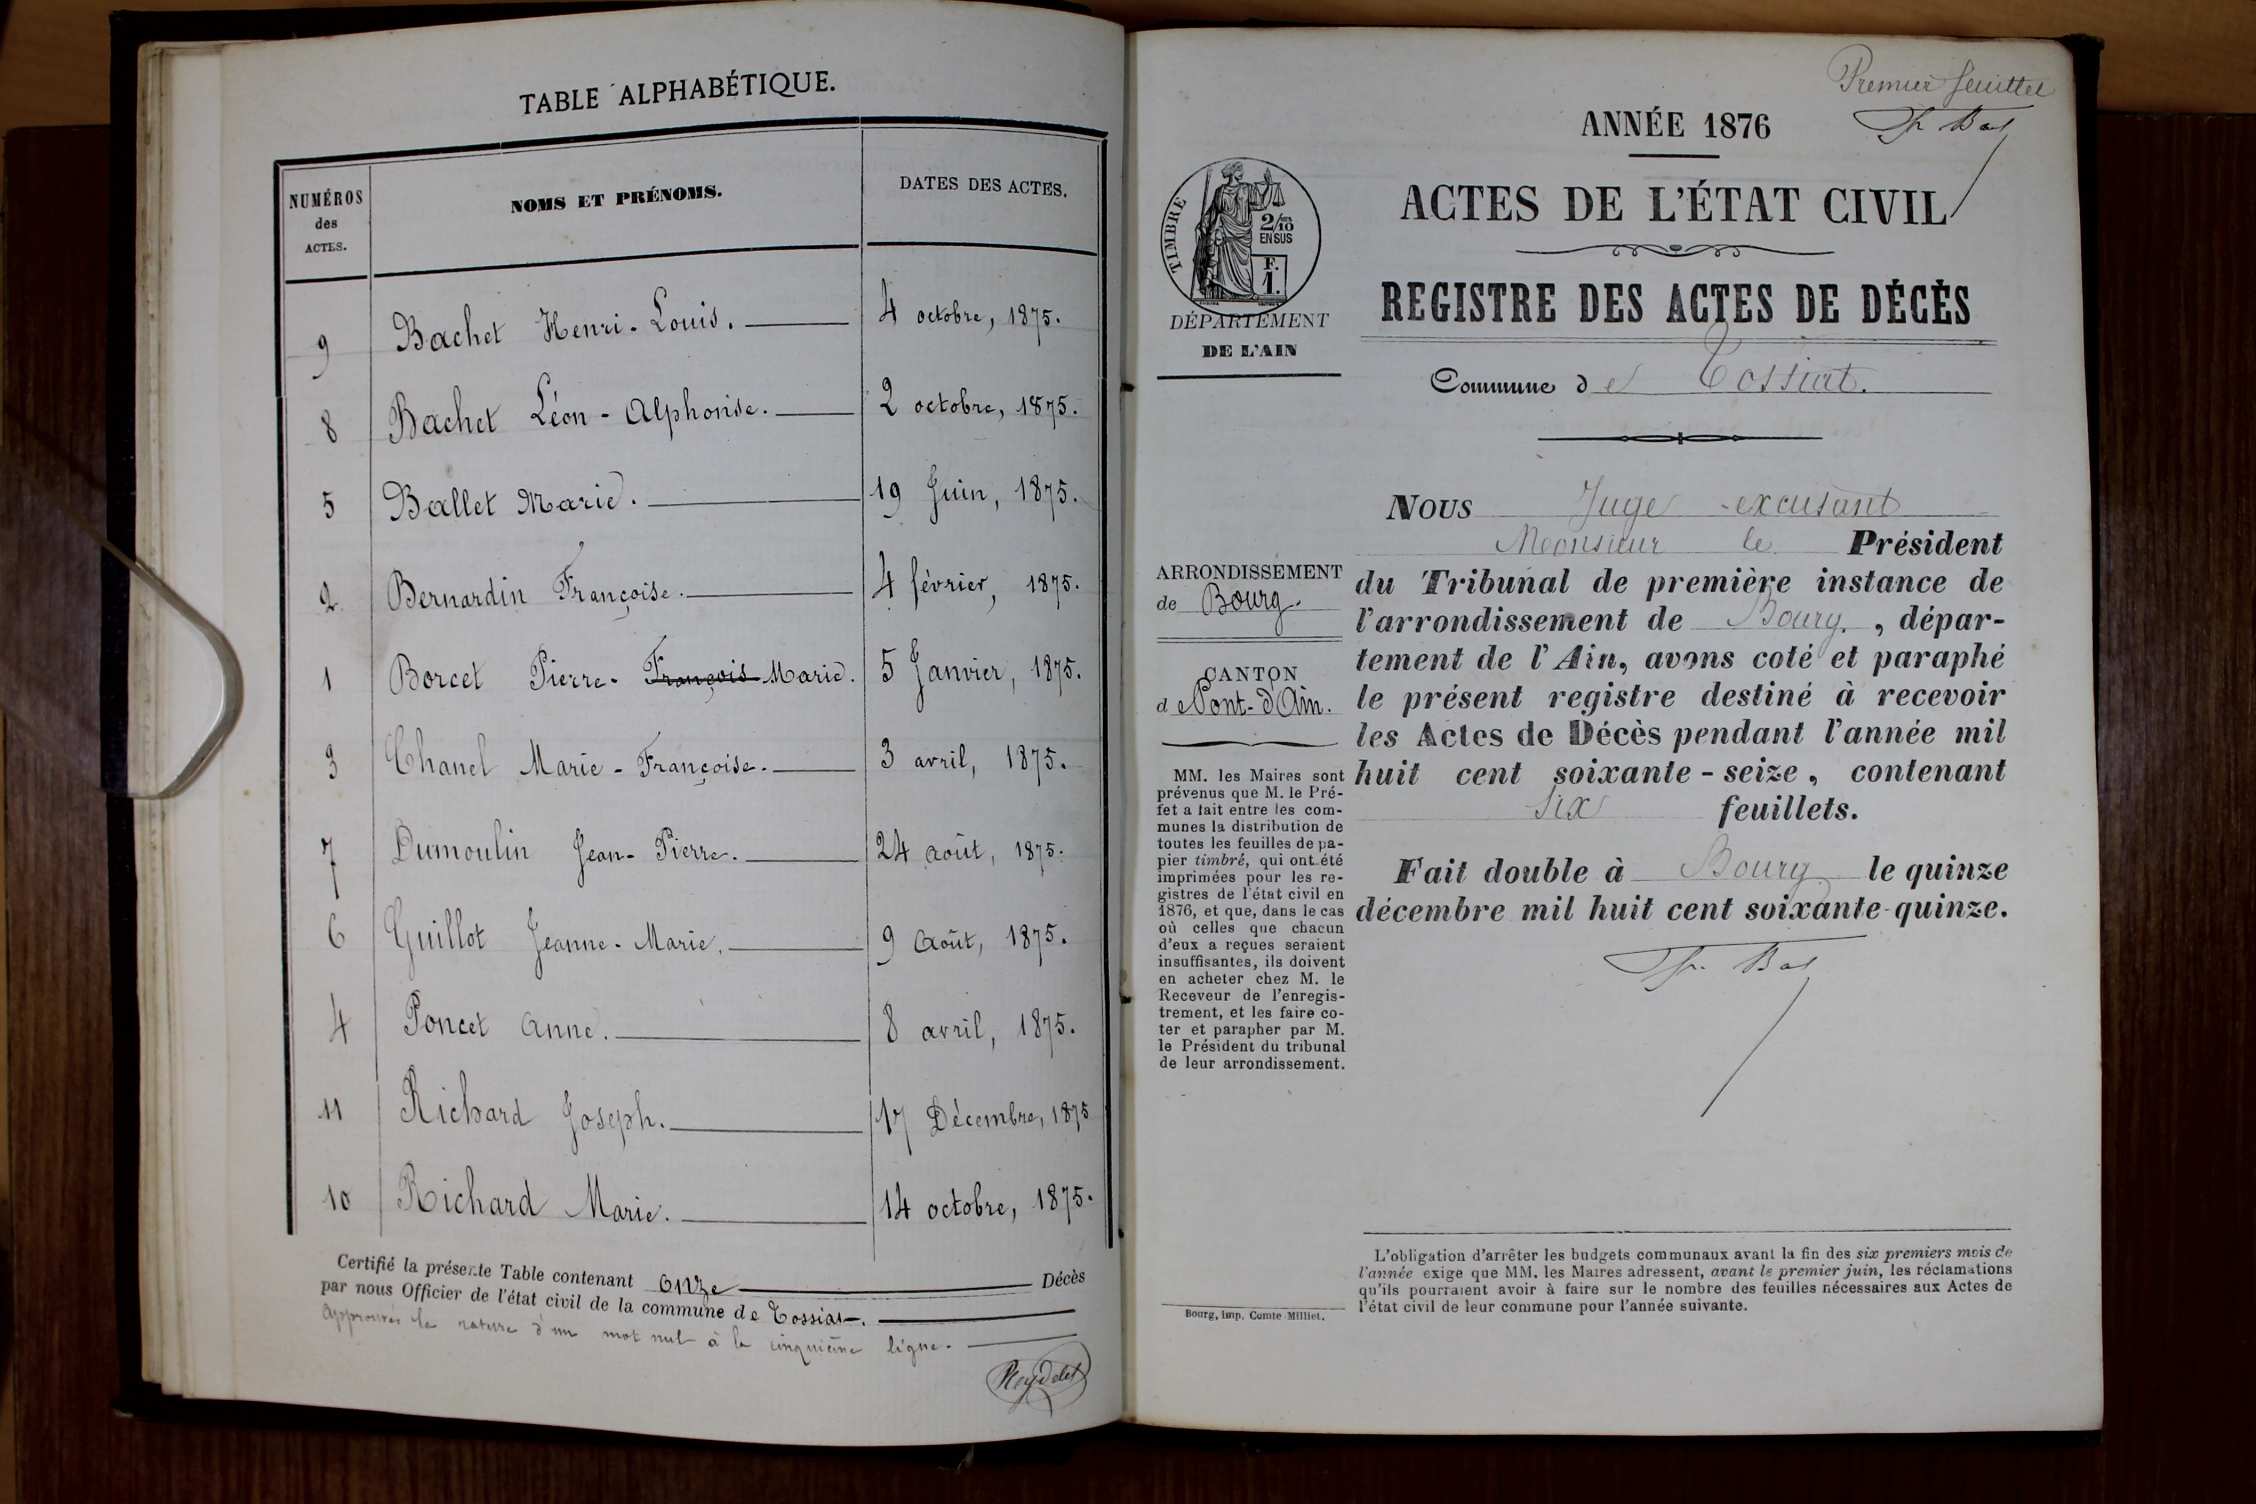 TABLE ALPHABÉTIQUE.
NUMÉROS des ACTES. NOMS ET PRÉNOMS. DATES DES ACTES.
9 Bachet Henri-Louis. 4 octobre, 1875.
8 Bachet Léon-Alphonse. 2 octobre, 1875.
5 Ballet Marie. 19 Juin, 1875.
2 Bernardin Françoise. 4 février, 1875.
1 Borcet Pierre-François Marie. 5 Janvier, 1875.
3 Chanel Marie-Françoise. 3 avril, 1875.
7 Dumoulin Jean-Pierre. 24 août, 1875.
6 Guillot Jeanne-Marie. 9 août, 1875.
4 Poncet Anne. 8 avril, 1875.
11 Richard Joseph. 17 Décembre, 1875
10 Richard Marie. 14 octobre, 1875.
Certifié la présente Table contenant onze Décès
par nous Officier de l'état civil de la commune de Tossiat.
Approuvés la rature d'un mot nul à la cinquième ligne.
Premier feuillet
ANNÉE 1876
ACTES DE L'ÉTAT CIVIL
TIMBRE
2/10
EN SUS
F.
1.
DÉPARTEMENT
DE L'AIN
REGISTRE DES ACTES DE DÉCÈS
Commune de Tossiat.
ARRONDISSEMENT
de Bourg.
CANTON
de Pont-d'Ain.
MM. les Maires sont
prévenus que M. le Pré-
fet a fait entre les com-
munes la distribution de
toutes les feuilles de pa-
pier timbré, qui ont été
imprimées pour les re-
gistres de l'état civil en
1876, et que, dans le cas
où celles que chacun
d'eux a reçues seraient
insuffisantes, ils doivent
en acheter chez M. le
Receveur de l'enregis-
trement, et les faire co-
ter et parapher par M.
le Président du tribunal
de leur arrondissement.
Bourg, imp. Comte-Milliet.
Nous Juge excusant
Monsieur le Président
du Tribunal de première instance de
l'arrondissement de Bourg, dépar-
tement de l'Ain, avons coté et paraphé
le présent registre destiné à recevoir
les Actes de Décès pendant l'année mil
huit cent soixante-seize, contenant
six feuillets.
Fait double à Bourg le quinze
décembre mil huit cent soixante-quinze.
L'obligation d'arrêter les budgets communaux avant la fin des six premiers mois de
l'année exige que MM. les Maires adressent, avant le premier juin, les réclamations
qu'ils pourraient avoir à faire sur le nombre des feuilles nécessaires aux Actes de
l'état civil de leur commune pour l'année suivante.